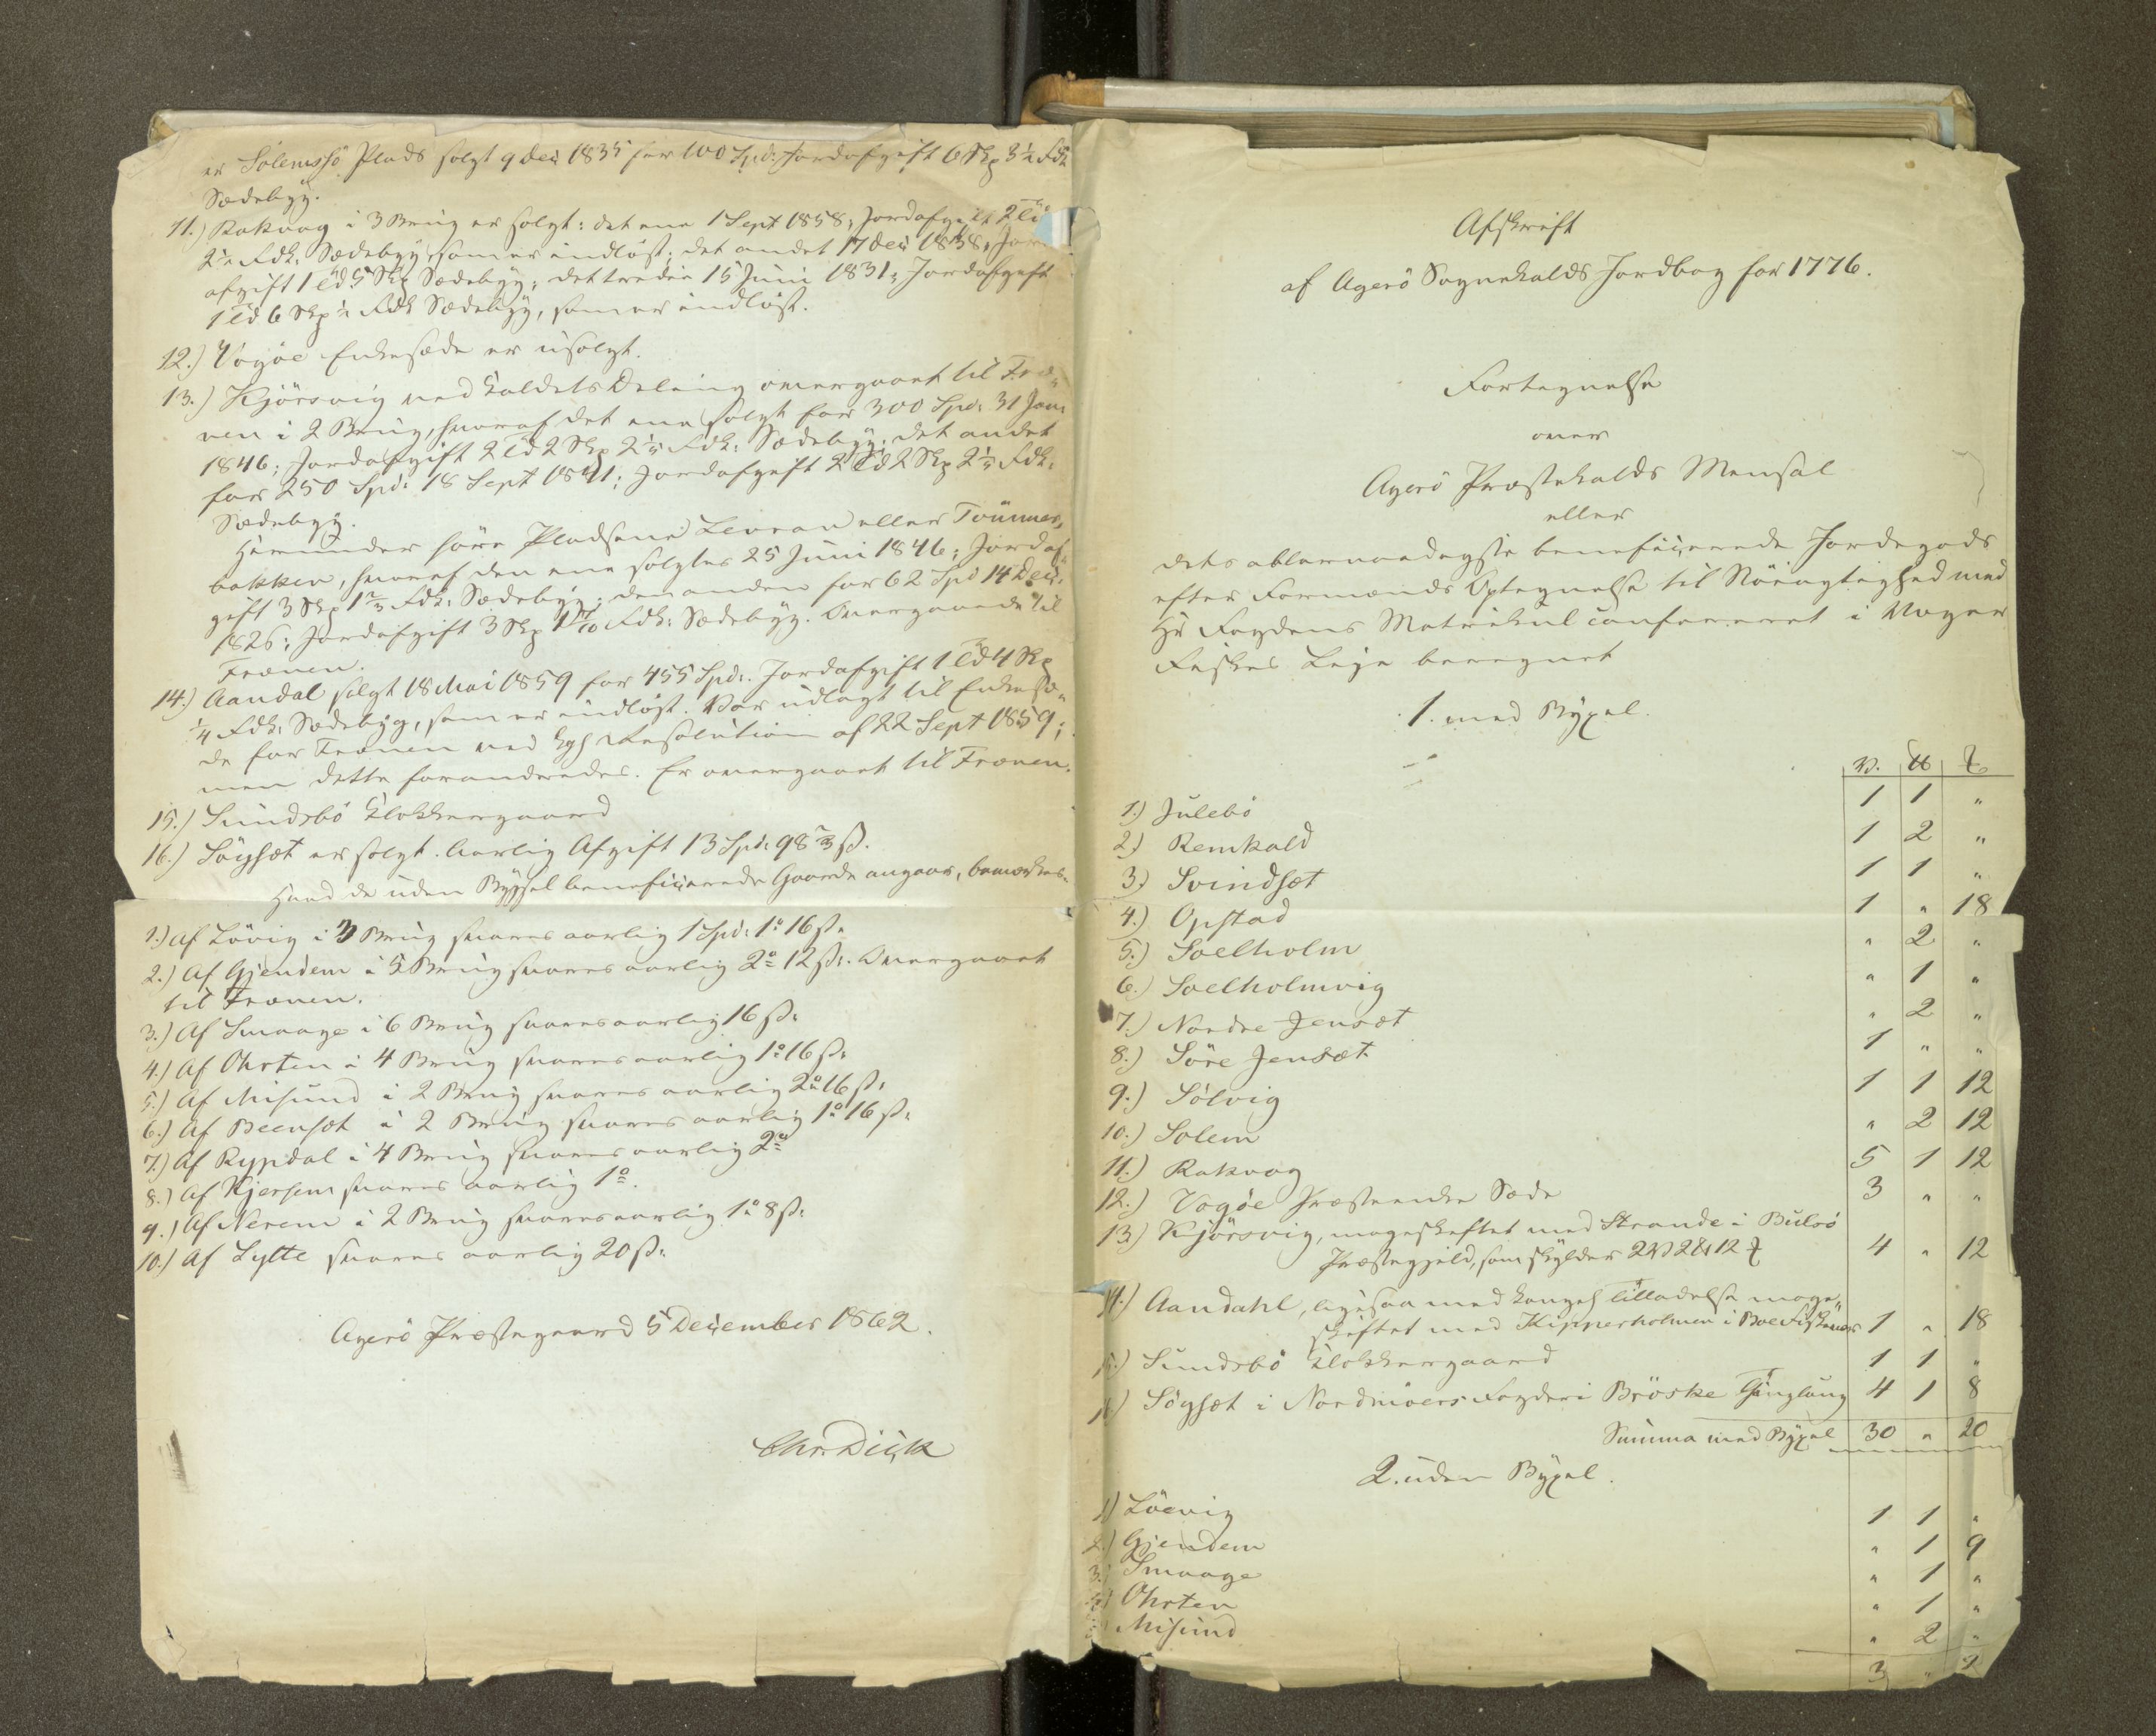 er Solemssö Plads solgt 9 Dec 1835 for 100 Spd: Jordafgift 6 Skp 3½ Fdk
Sædebyg.
11.) Rakvag i 3 Brug er solgt: det ene 1 Sept 1858; Jordafgift 2 Td
2½ Fdk: Sædebyg, som er indløst; det andet 17 Dec 1838; Jord
afgift 1 Td 5 Skp Sædebyg; det tredie 15 Juni 1831; Jordafgift
1 Td 6 Skp ½ Fdk Sædebyg, som er indløst.
12.) Vogöe Enkesæde er usolgt.
13.) Kjörsvig ved Kaldets Deling overgaaet til Fræ-
nen i 2 Brug, hvoraf det ene solgt for 300 Spd: 31 Jan
1846; Jordafgift 2 Td 2 Skp 2⅕ Fdk: Sædebyg; det andet
for 250 Spd: 18 Sept 1841; Jordafgift 2 Td 2 Skp 2⅕ Fdk:
Sædebyg.
Herunder høre Pladsene Levran eller Tommer-
bakken, hvoraf den ene solgtes 25 Juni 1846; Jordaf-
gift 3 Skp 1⅔ Fdk: Sædebyg; den anden for 62 Spd 14 Dec:
1826; Jordafgift 3 Skp Fdk: Sædebyg. Overgaaede til
Frænen.
14.) Aandal solgt 18 Mai 1859 for 455 Spd:. Jordafgift 1 Td 4 Skp
¼ Fdk: Sædebyg, som er indløst. Var udlagt til Enkesæ-
de for Frænen ved Kgl Resolution af 22 Sept 1859;
men dette forandredes. Er overgaaet til Frænen.
15.) Sundsbö Klokkergaard
16.) Sögset er solgt. Aarlig Afgift 13 Spd: 98⅔ ß.
Hvad de uden Bygsel beneficerede Gaarde angaar, bemærkes:
1.) Af Lövig i 3 Brug svares aarlig 1 Spd: 1 16 ß.
2.) Af Gjendem i 5 Brug svares aarlig 2 12 ß:. Overgaaet
til Frænen.
3.) Af Smaage i 6 Brug svares aarlig 16 ß:
4.) Af Ohrten i 4 Brug svares aarlig 1 16 ß:
5.) Af Misund i 2 Brug svares aarlig 2 16 ß:
6.) Af Beenset i 2 Brug svares aarlig 1 16 ß:
7.) Af Rypdal i 4 Brug svares aarlig 2
8.) Af Kjersem svares aarlig 1
9.) Af Nerem i 2 Brug svares aarlig 1 8 ß:
10.) Af Lytte svares aarlig 20 ß:
Agerö Præstegaard 5 December 1862.
Chr Dick
Afskrift
af Agerö Sognekalds Jordbog for 1776.
Fortegnelse
over
Agerö Præstekalds Mensal
eller
dets allernaadigste beneficerede Jordegods
efter Formænds Optegnelse til Nöiagtighed med
Hr Fogdens Matrikul confereret i Voger
Fiskes Leje beregnet
1. med Bÿxel.
V. ℔ ₰
1.) Julebö 1 1 "
2.) Remkald 1 2 "
3.) Svindset 1 1 "
4.) Opstad 1 " 18
5.) Soelholm " 2 "
6.) Soelholmvig " 1 "
7.) Nordre Jenset " 2 "
8.) Söre Jenset 1 " "
9.) Sölvig 1 1 12
10.) Solem " 2 12
11.) Rakvag 5 1 12
12.) Vogöe Præsteenke Sæde 3 " "
13.) Kjörsvig, mageskiftet med Strande i Bulsö
Præstegjeld, som skylder 2 V 2 ℔ 12 ₰ 4 " 12
14.) Aandahl, ligesaa med kongel Tilladelse mage-
skiftet med Kipperholmen i Boe 1 " 18
15.) Sundsbö Klokkergaard 1 1 "
16.) Sögset i Nordmöers Fogderi Bröske Tinglaug 4 1 8
Summa med Bÿxel 30 " 20
2. uden Bÿxel.
1.) Löevig 1 1 "
2.) Gjendem " 1 9
3.) Smaage " 1 "
4.) Ohrten " 1 "
5.) Misund " 2 "
3 "